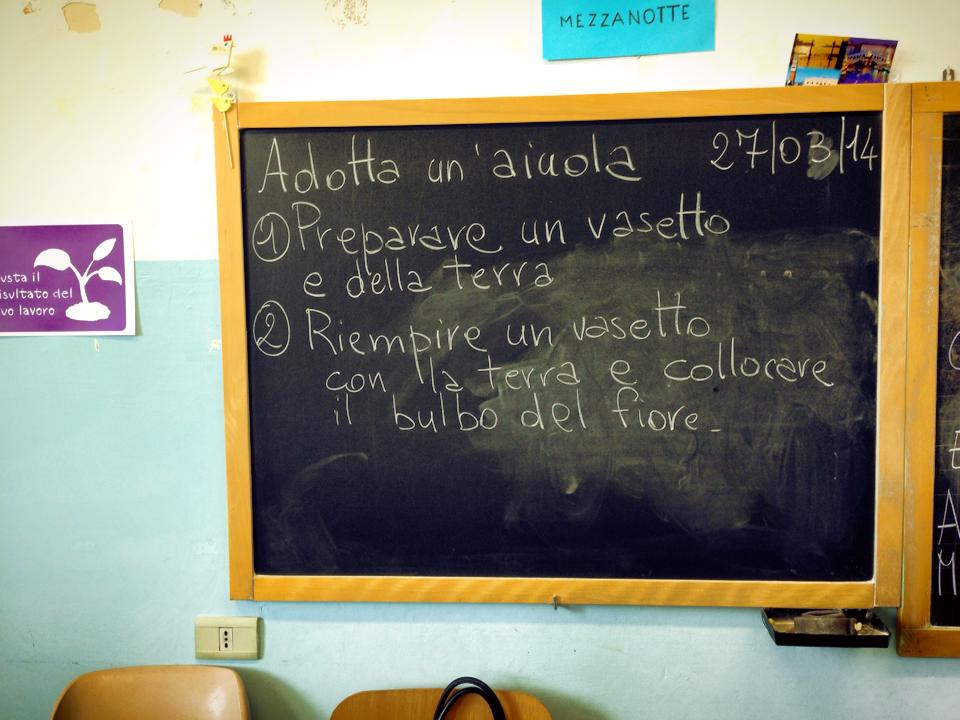 MEZZANOTTE
Adotta un'aiuola 27/03/14
① Preparare un vasetto
e della terra
② Riempire un vasetto
con la terra e collocare
il bulbo del fiore_
usta il
isultato del
uo lavoro
E
A
M